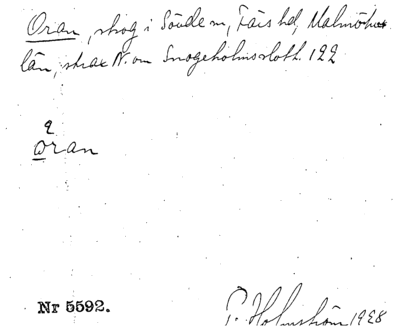 Oran, skog i Sövde sn, Färs hd, Malmöhus
län, strax N. om Snogeholms slott. 122
ǫran
Nr 5592.
P. Holmström 1928